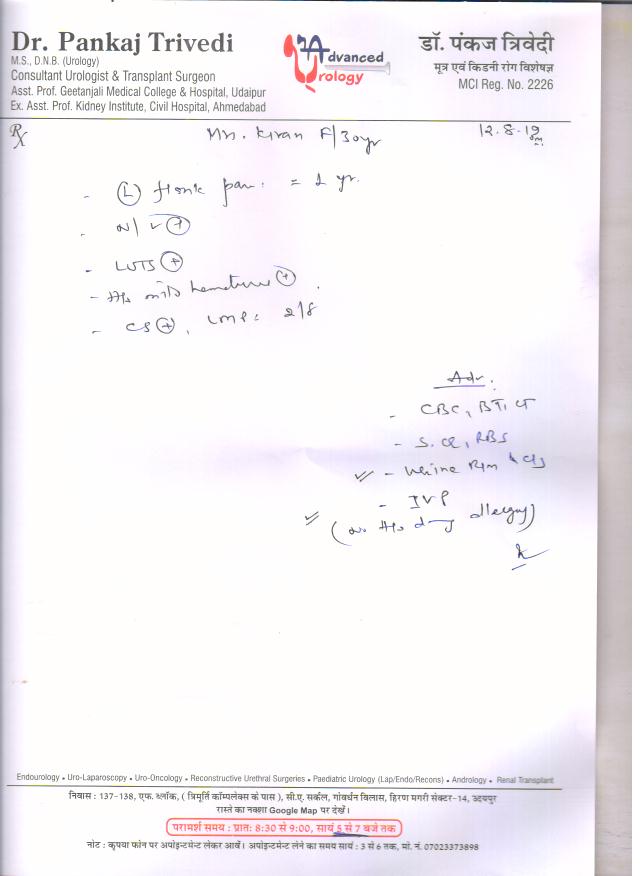 Dr. Pankaj Trivedi
M.S., D.N.B. (Urology)
Consultant Urologist & Transplant Surgeon
Asst. Prof. Geetanjali Medical College & Hospital, Udaipur
Ex. Asst. Prof. Kidney Institute, Civil Hospital, Ahmedabad
Advanced
Urology
डॉ. पंकज त्रिवेदी
मूत्र एवं किडनी रोग विशेषज्ञ
MCI Reg. No. 2226
Rx
Mrs. Kiran F/30yr
12.8.19
- (L) flank pain = 1 yr.
- N/V (+)
- LUTS (+)
- H/o mild hematuria (+)
- CS (+), LMP: 2/8
Adv:
- CBC, BT, CT
- S. Cr, RBS
- Urine R/m & C/s
- IVP
(no H/o drug allergy)
Endourology • Uro-Laparoscopy • Uro-Oncology • Reconstructive Urethral Surgeries • Paediatric Urology (Lap/Endo/Recons) • Andrology • Renal Transplant
निवास : 137-138, एफ. ब्लॉक, ( त्रिमूर्ति कॉम्पलेक्स के पास ), सी.ए. सर्कल, गोवर्धन विलास, हिरण मगरी सेक्टर-14, उदयपुर
रास्ते का नक्शा Google Map पर देखें।
परामर्श समय : प्रातः 8:30 से 9:00, सायं 5 से 7 बजे तक
नोट : कृपया फोन पर अपोइन्टमेन्ट लेकर आवें। अपोइन्टमेन्ट लेने का समय सायं : 3 से 6 तक, मो. नं. 07023373898